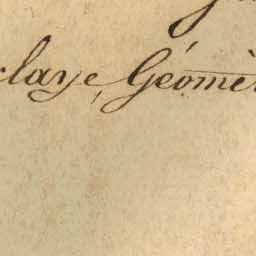 claye, Géomè